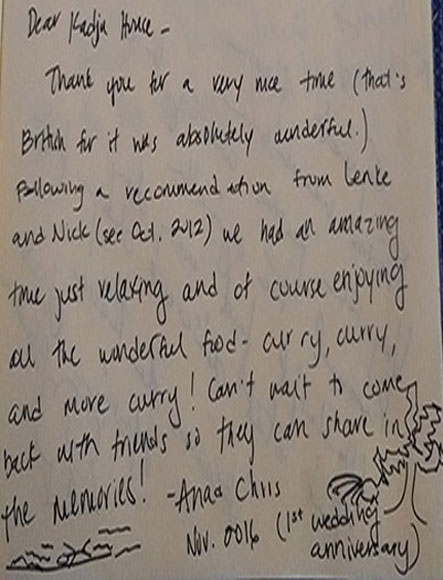 Dear Kadju House -
Thank you for a very nice time (that's
British for it was absolutely wonderful.)
Following a recommendation from Lenke
and Nick (see Oct. 2012) we had an amazing
time just relaxing and of course enjoying
all the wonderful food - curry, curry,
and more curry! Can't wait to come
back with friends so they can share in
the memories! - Chris
Nov. 2016 (1st wedding
anniversary)